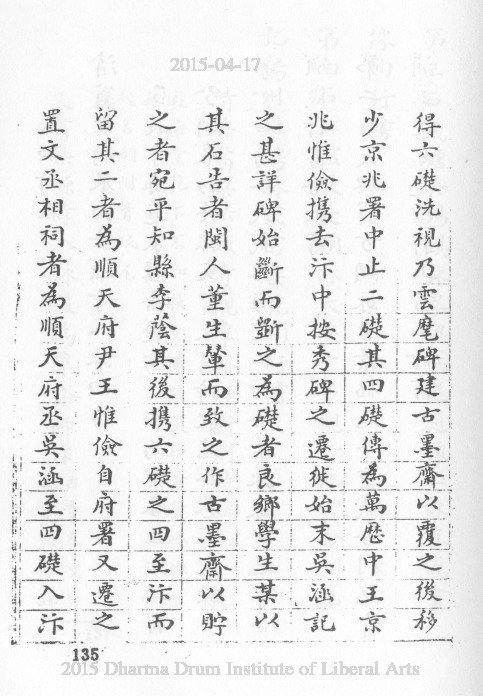 2015-04-17
得六礎洗視乃雲麾碑建古墨齋以覆之後移
少京兆署中止二礎其四礎傳為萬歷中王京
兆惟儉携去汴中按秀碑之遷徙始末吳涵記
之甚詳碑始斷而斲之為礎者良鄉學生某以
其石告者閩人董生輦而致之作古墨齋以貯
之者宛平知縣李蔭其後携六礎之四至汴而
留其二者為順天府尹王惟儉自府署又遷之
置文丞相祠者為順天府丞吳涵至四礎入汴
135
2015 Dharma Drum Institute of Liberal Arts